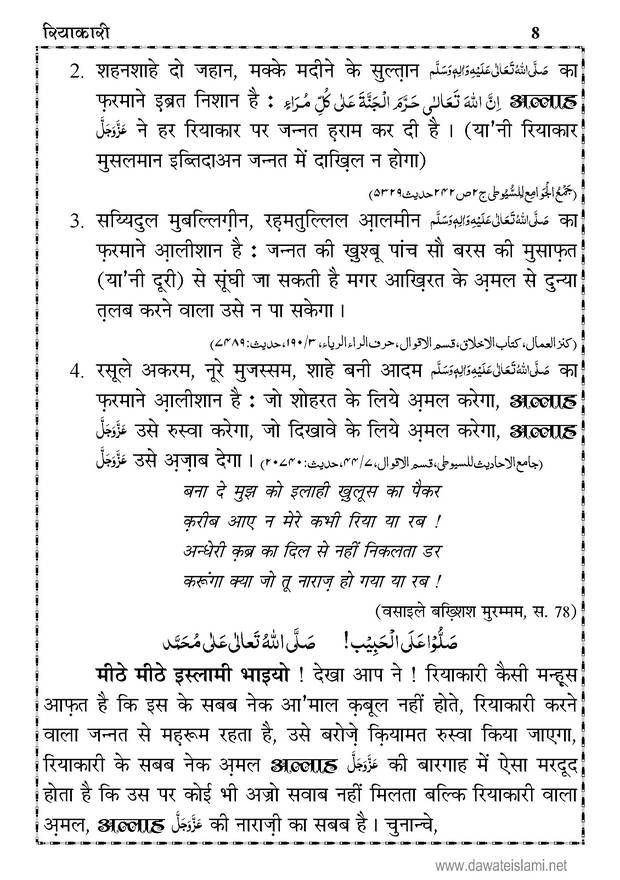 रियाकारी 8
2. शहनशाहे दो जहान, मक्के मदीने के सुल्तान صَلَّى اللهُ تَعَالٰى عَلَيْهِ وَاٰلِهٖ وَسَلَّم का
फ़रमाने इब्रत निशान है : اِنَّ اللهَ تَعَالٰى حَرَّمَ الْجَنَّةَ عَلٰى كُلِّ مُرَاءٍ अल्लाह
عَزَّوَجَلَّ ने हर रियाकार पर जन्नत ह़राम कर दी है । (या'नी रियाकार
मुसलमान इब्तिदाअन जन्नत में दाख़िल न होगा)
(جَمْعُ الْجَوَامِع لِلسُّيُوطِى ج۲ ص۲۴۲ حديث۵۳۲۹)
3. सय्यिदुल मुबल्लिग़ीन, रह़मतुल्लिल आ़लमीन صَلَّى اللهُ تَعَالٰى عَلَيْهِ وَاٰلِهٖ وَسَلَّم का
फ़रमाने आ़लीशान है : जन्नत की ख़ुश्बू पांच सौ बरस की मुसाफ़त
(या'नी दूरी) से सूंघी जा सकती है मगर आख़िरत के अ़मल से दुन्या
त़लब करने वाला उसे न पा सकेगा ।
(كنز العمال، كتاب الاخلاق، قسم الاقوال، حرف الراء الرياء، ۱۹۰/۳، حديث:۷۴۸۹)
4. रसूले अकरम, नूरे मुजस्सम, शाहे बनी आदम صَلَّى اللهُ تَعَالٰى عَلَيْهِ وَاٰلِهٖ وَسَلَّم का
फ़रमाने आ़लीशान है : जो शोहरत के लिये अ़मल करेगा, अल्लाह
عَزَّوَجَلَّ उसे रुस्वा करेगा, जो दिखावे के लिये अ़मल करेगा, अल्लाह
عَزَّوَجَلَّ उसे अ़ज़ाब देगा । (جامع الاحاديث للسيوطى، قسم الاقوال، ۴۴/۷، حديث:۲۰۷۴۰)
बना दे मुझ को इलाही ख़ुलूस का पैकर
क़रीब आए न मेरे कभी रिया या रब !
अन्धेरी क़ब्र का दिल से नहीं निकलता डर
करूंगा क्या जो तू नाराज़ हो गया या रब !
(वसाइले बख़्शिश मुरम्मम, स. 78)
صَلُّوْا عَلَى الْحَبِيْب! صَلَّى اللهُ تَعَالٰى عَلٰى مُحَمَّد
मीठे मीठे इस्लामी भाइयो ! देखा आप ने ! रियाकारी कैसी मन्हूस
आफ़त है कि इस के सबब नेक आ'माल क़बूल नहीं होते, रियाकारी करने
वाला जन्नत से मह़रूम रहता है, उसे बरोज़े क़ियामत रुस्वा किया जाएगा,
रियाकारी के सबब नेक अ़मल अल्लाह عَزَّوَجَلَّ की बारगाह में ऐसा मरदूद
होता है कि उस पर कोई भी अज्रो सवाब नहीं मिलता बल्कि रियाकारी वाला
अ़मल, अल्लाह عَزَّوَجَلَّ की नाराज़ी का सबब है । चुनान्चे,
www.dawateislami.net